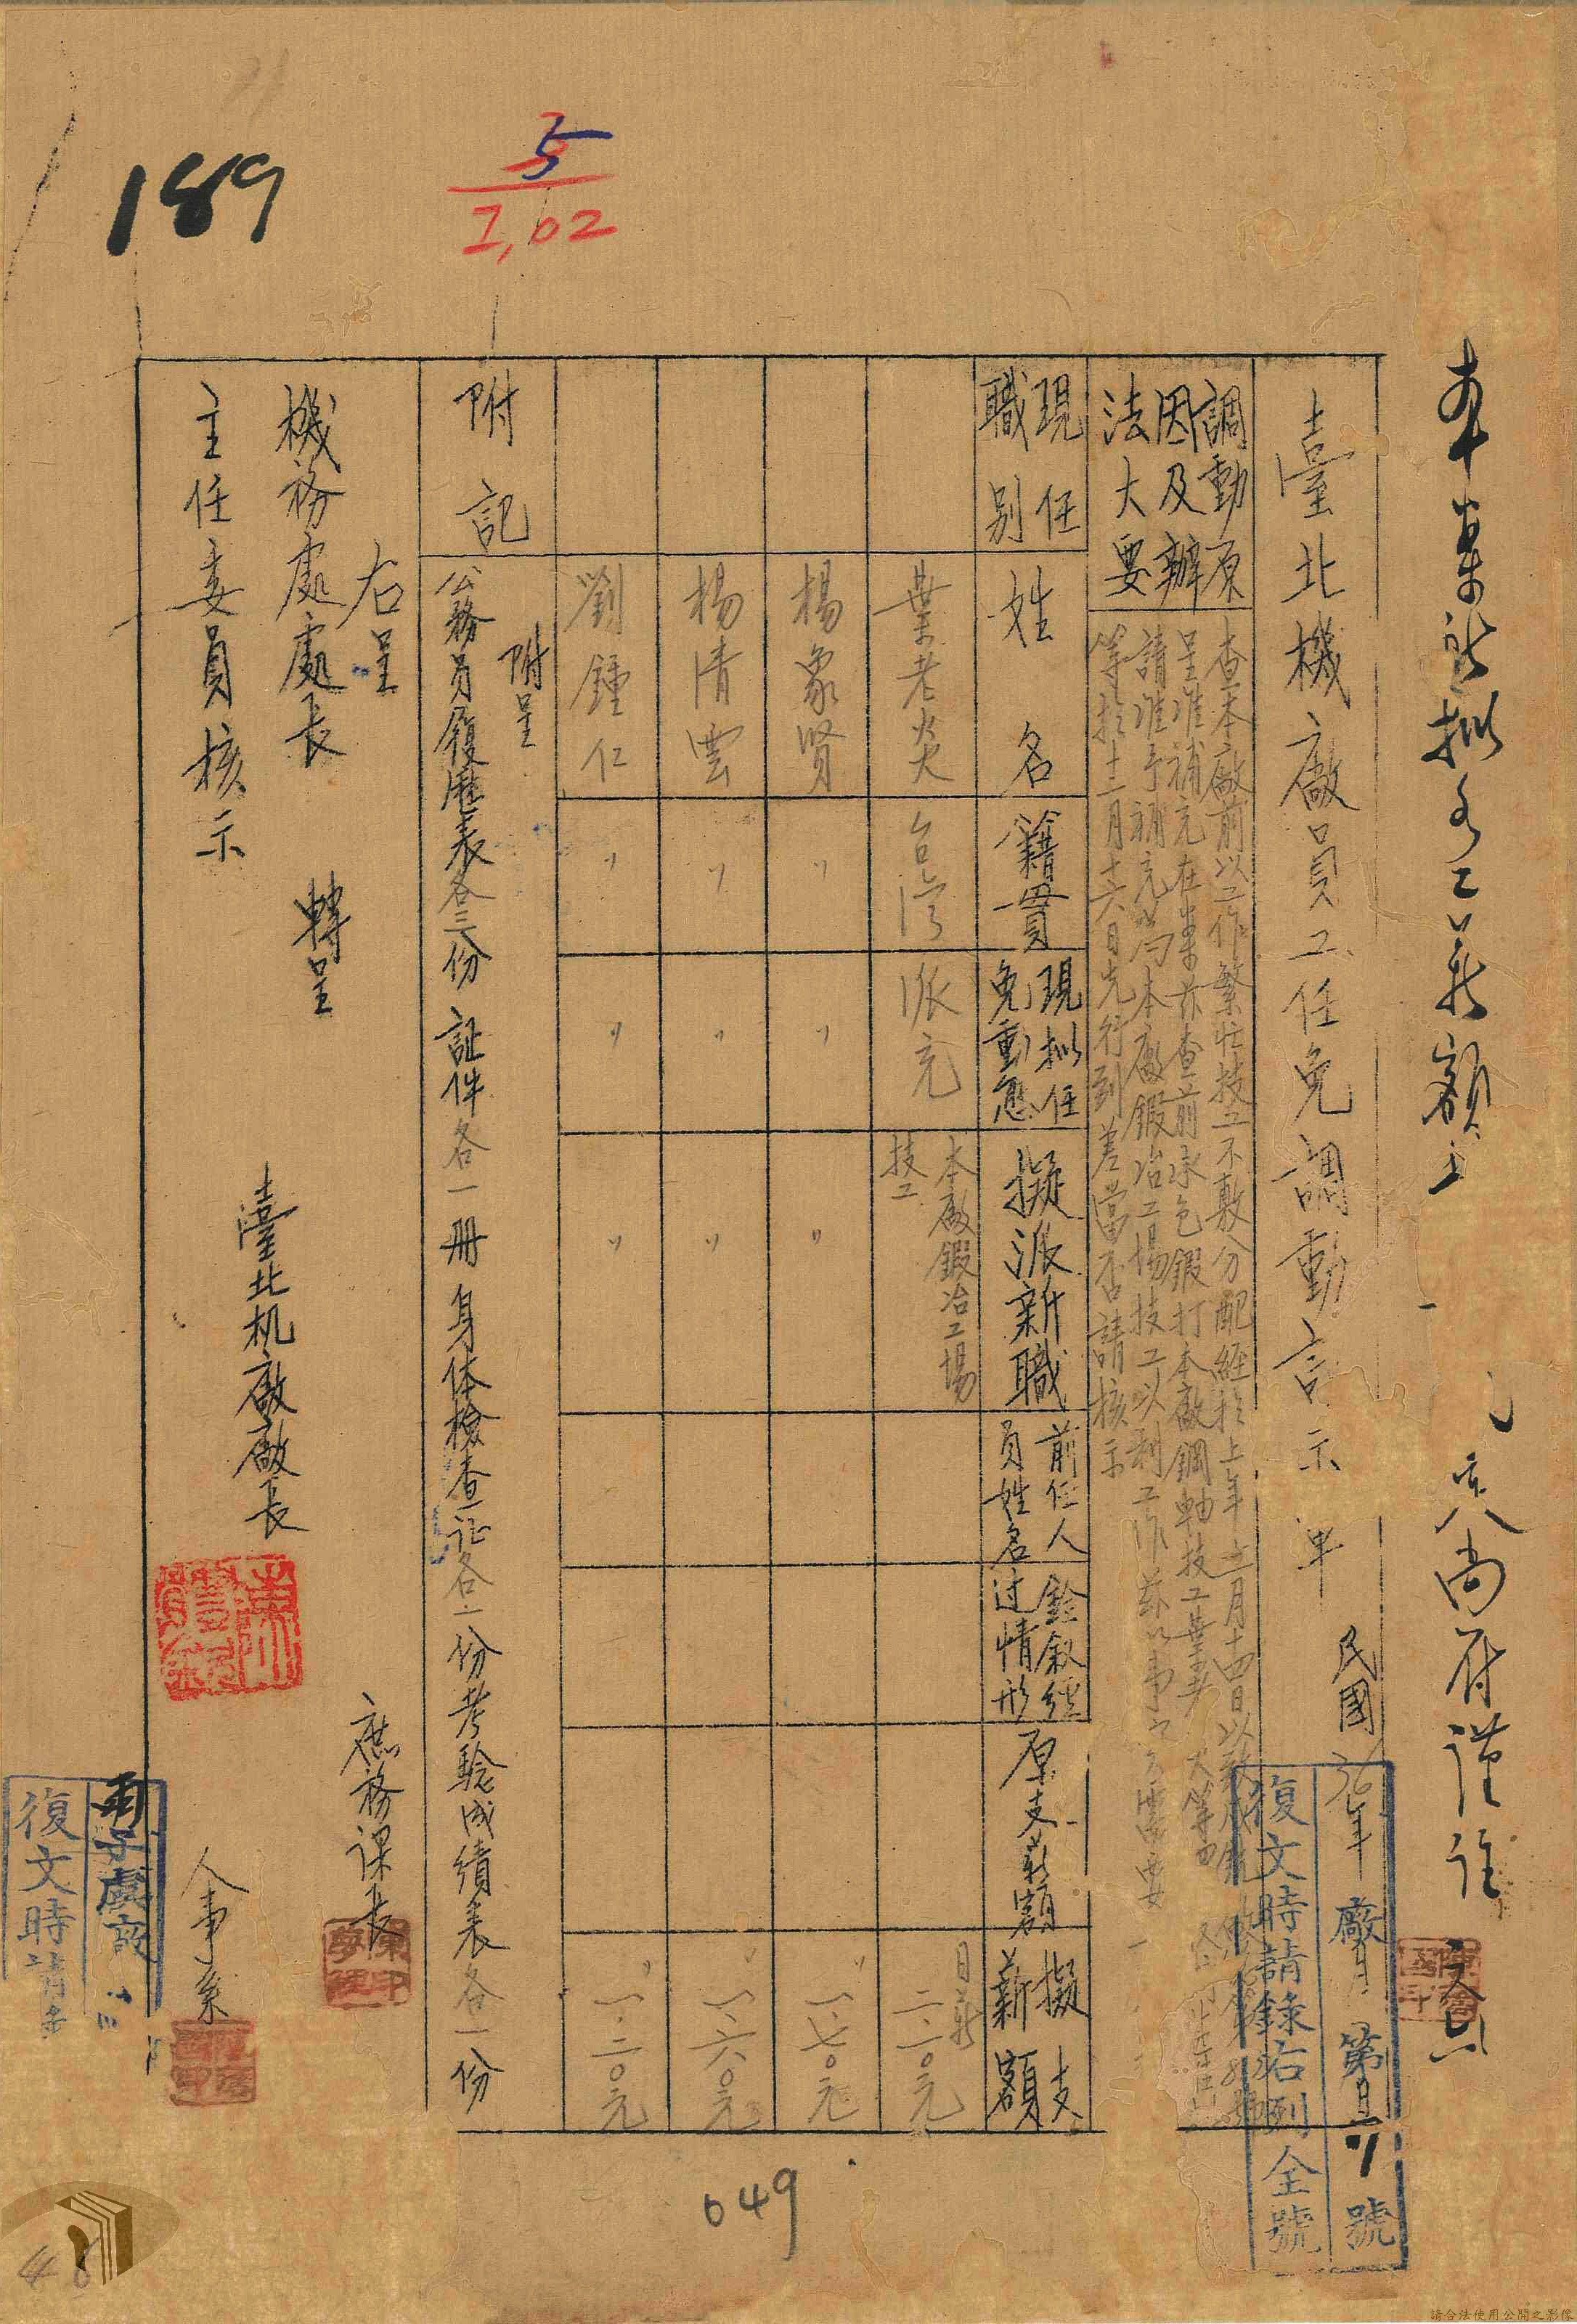 189
5
1,02
本案所擬各工薪額上
尚府謹註
臺北機廠員工任免調動言示單
民國36年 月 日
廠 第 號
復文時請錄右列全號
調動原因及辦法大要
查本廠前以工作繁忙技工不敷分配經於上年 月十四日以
呈准補充在案茲查前承包鍛打本廠鋼軸技工葉老火等四
請准予補充為本廠鍛冶工場技工以利工作茲以事實需要
等於十二月十六日先行到差當否請核示
現任職別
姓名
籍貫
現擬任免動態
擬派新職
前任人員姓名
銓敘經过情形
原支薪額
擬支薪額
葉老火
台湾
派充
本廠鍛冶工場技工
日薪
二.一〇元
楊象賢
〃
〃
〃
〃
一.七〇元
楊清雲
〃
〃
〃
〃
一.六〇元
劉鍾仁
〃
〃
〃
〃
一.二〇元
附記
附呈
公務員履歷表各三份 証件各一册 身体檢查証各二份考驗成績表各一份
右呈
機務處處長 轉呈
主任委員核示
臺北机廠廠長
庶務课長
人事系
復文時請
049
48
請合法使用公開之影像